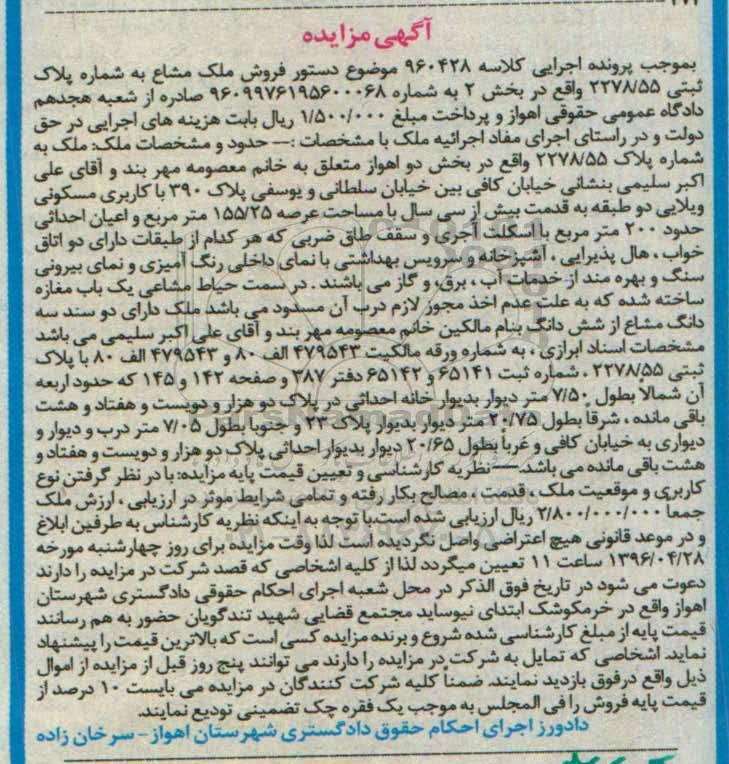 آگهی مزایده
بموجب پرونده اجرایی کلاسه ۹۶۰۴۲۸ موضوع دستور فروش ملک مشاع به شماره پلاک
ثبتی ۲۲۷۸/۵۵ واقع در بخش ۲ به شماره ۹۶۰۹۹۷۶۱۹۵۶۰۰۰۶۸ صادره از شعبه هجدهم
دادگاه عمومی حقوقی اهواز و پرداخت مبلغ ۱/۵۰۰/۰۰۰ ریال بابت هزینه های اجرایی در حق
دولت و در راستای اجرای مفاد اجرائیه ملک با مشخصات :— حدود و مشخصات ملک: ملک به
شماره پلاک ۲۲۷۸/۵۵ واقع در بخش دو اهواز متعلق به خانم معصومه مهر بند و آقای علی
اکبر سلیمی بنشانی خیابان کافی بین خیابان سلطانی و یوسفی پلاک ۳۹۰ با کاربری مسکونی
ویلایی دو طبقه به قدمت بیش از سی سال با مساحت عرصه ۱۵۵/۲۵ متر مربع و اعیان احداثی
حدود ۲۰۰ متر مربع با اسکلت آجری و سقف طاق ضربی که هر کدام از طبقات دارای دو اتاق
خواب ، هال پذیرایی ، آشپزخانه و سرویس بهداشتی با نمای داخلی رنگ آمیزی و نمای بیرونی
سنگ و بهره مند از خدمات آب ، برق، و گاز می باشند . در سمت حیاط مشاعی یک باب مغازه
ساخته شده که به علت عدم اخذ مجوز لازم درب آن مسدود می باشد ملک دارای دو سند سه
دانگ مشاع از شش دانگ بنام مالکین خانم معصومه مهر بند و آقای علی اکبر سلیمی می باشد
مشخصات اسناد ابرازی ، به شماره ورقه مالکیت ۴۷۹۵۴۳ الف ۸۰ و ۴۷۹۵۴۳ الف ۸۰ با پلاک
ثبتی ۲۲۷۸/۵۵ ، شماره ثبت ۶۵۱۴۱ و ۶۵۱۴۲ دفتر ۳۸۷ و صفحه ۱۴۲ و ۱۴۵ که حدود اربعه
آن شمالاً بطول ۷/۵۰ متر دیوار بدیوار خانه احداثی در پلاک دو هزار و دویست و هفتاد و هشت
باقی مانده ، شرقا بطول ۲۰/۷۵ متر دیوار بدیوار پلاک ۲۳ و جنوبا بطول ۷/۰۵ متر درب و دیوار و
دیواری به خیابان کافی و غرباً بطول ۲۰/۶۵ دیوار بدیوار احداثی پلاک دو هزار و دویست و هفتاد و
هشت باقی مانده می باشد.— نظریه کارشناسی و تعیین قیمت پایه مزایده: با در نظر گرفتن نوع
کاربری و موقعیت ملک ، قدمت ، مصالح بکار رفته و تمامی شرایط موثر در ارزیابی ، ارزش ملک
جمعا ۲/۸۰۰/۰۰۰/۰۰۰ ریال ارزیابی شده است،با توجه به اینکه نظریه کارشناس به طرفین ابلاغ
و در موعد قانونی هیچ اعتراضی واصل نگردیده است لذا وقت مزایده برای روز چهارشنبه مورخه
۱۳۹۶/۰۴/۲۸ ساعت ۱۱ تعیین میگردد لذا از کلیه اشخاصی که قصد شرکت در مزایده را دارند
دعوت می شود در تاریخ فوق الذکر در محل شعبه اجرای احکام حقوقی دادگستری شهرستان
اهواز واقع در خرمکوشک ابتدای نیوساید مجتمع قضایی شهید تندگویان حضور به هم رسانند
قیمت پایه از مبلغ کارشناسی شده شروع و برنده مزایده کسی است که بالاترین قیمت را پیشنهاد
نماید. اشخاصی که تمایل به شرکت در مزایده را دارند می توانند پنج روز قبل از مزایده از اموال
ذیل واقع درفوق بازدید نمایند. ضمناً کلیه شرکت کنندگان در مزایده می بایست ۱۰ درصد از
قیمت پایه فروش را فی المجلس به موجب یک فقره چک تضمینی تودیع نمایند.
دادورز اجرای احکام حقوق دادگستری شهرستان اهواز - سرخان زاده